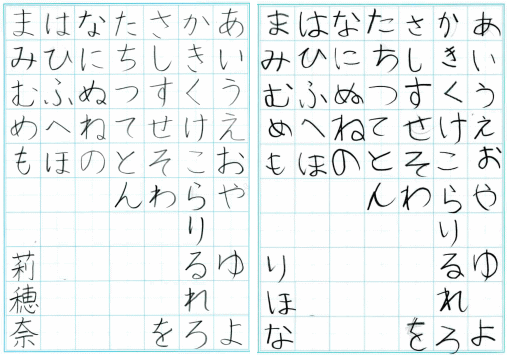 あいうえおやゆよ
かきくけこらりるれろ
さしすせそわを
たちつてとん
なにぬねの
はひふへほ
まみむめも
莉穂奈
あいうえおやゆよ
かきくけこらりるれろ
さしすせそわを
たちつてとん
なにぬねの
はひふへほ
まみむめも
りほな